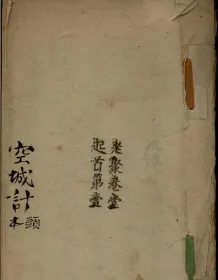 老聚卷堂
起首第壹
空城計
頭本